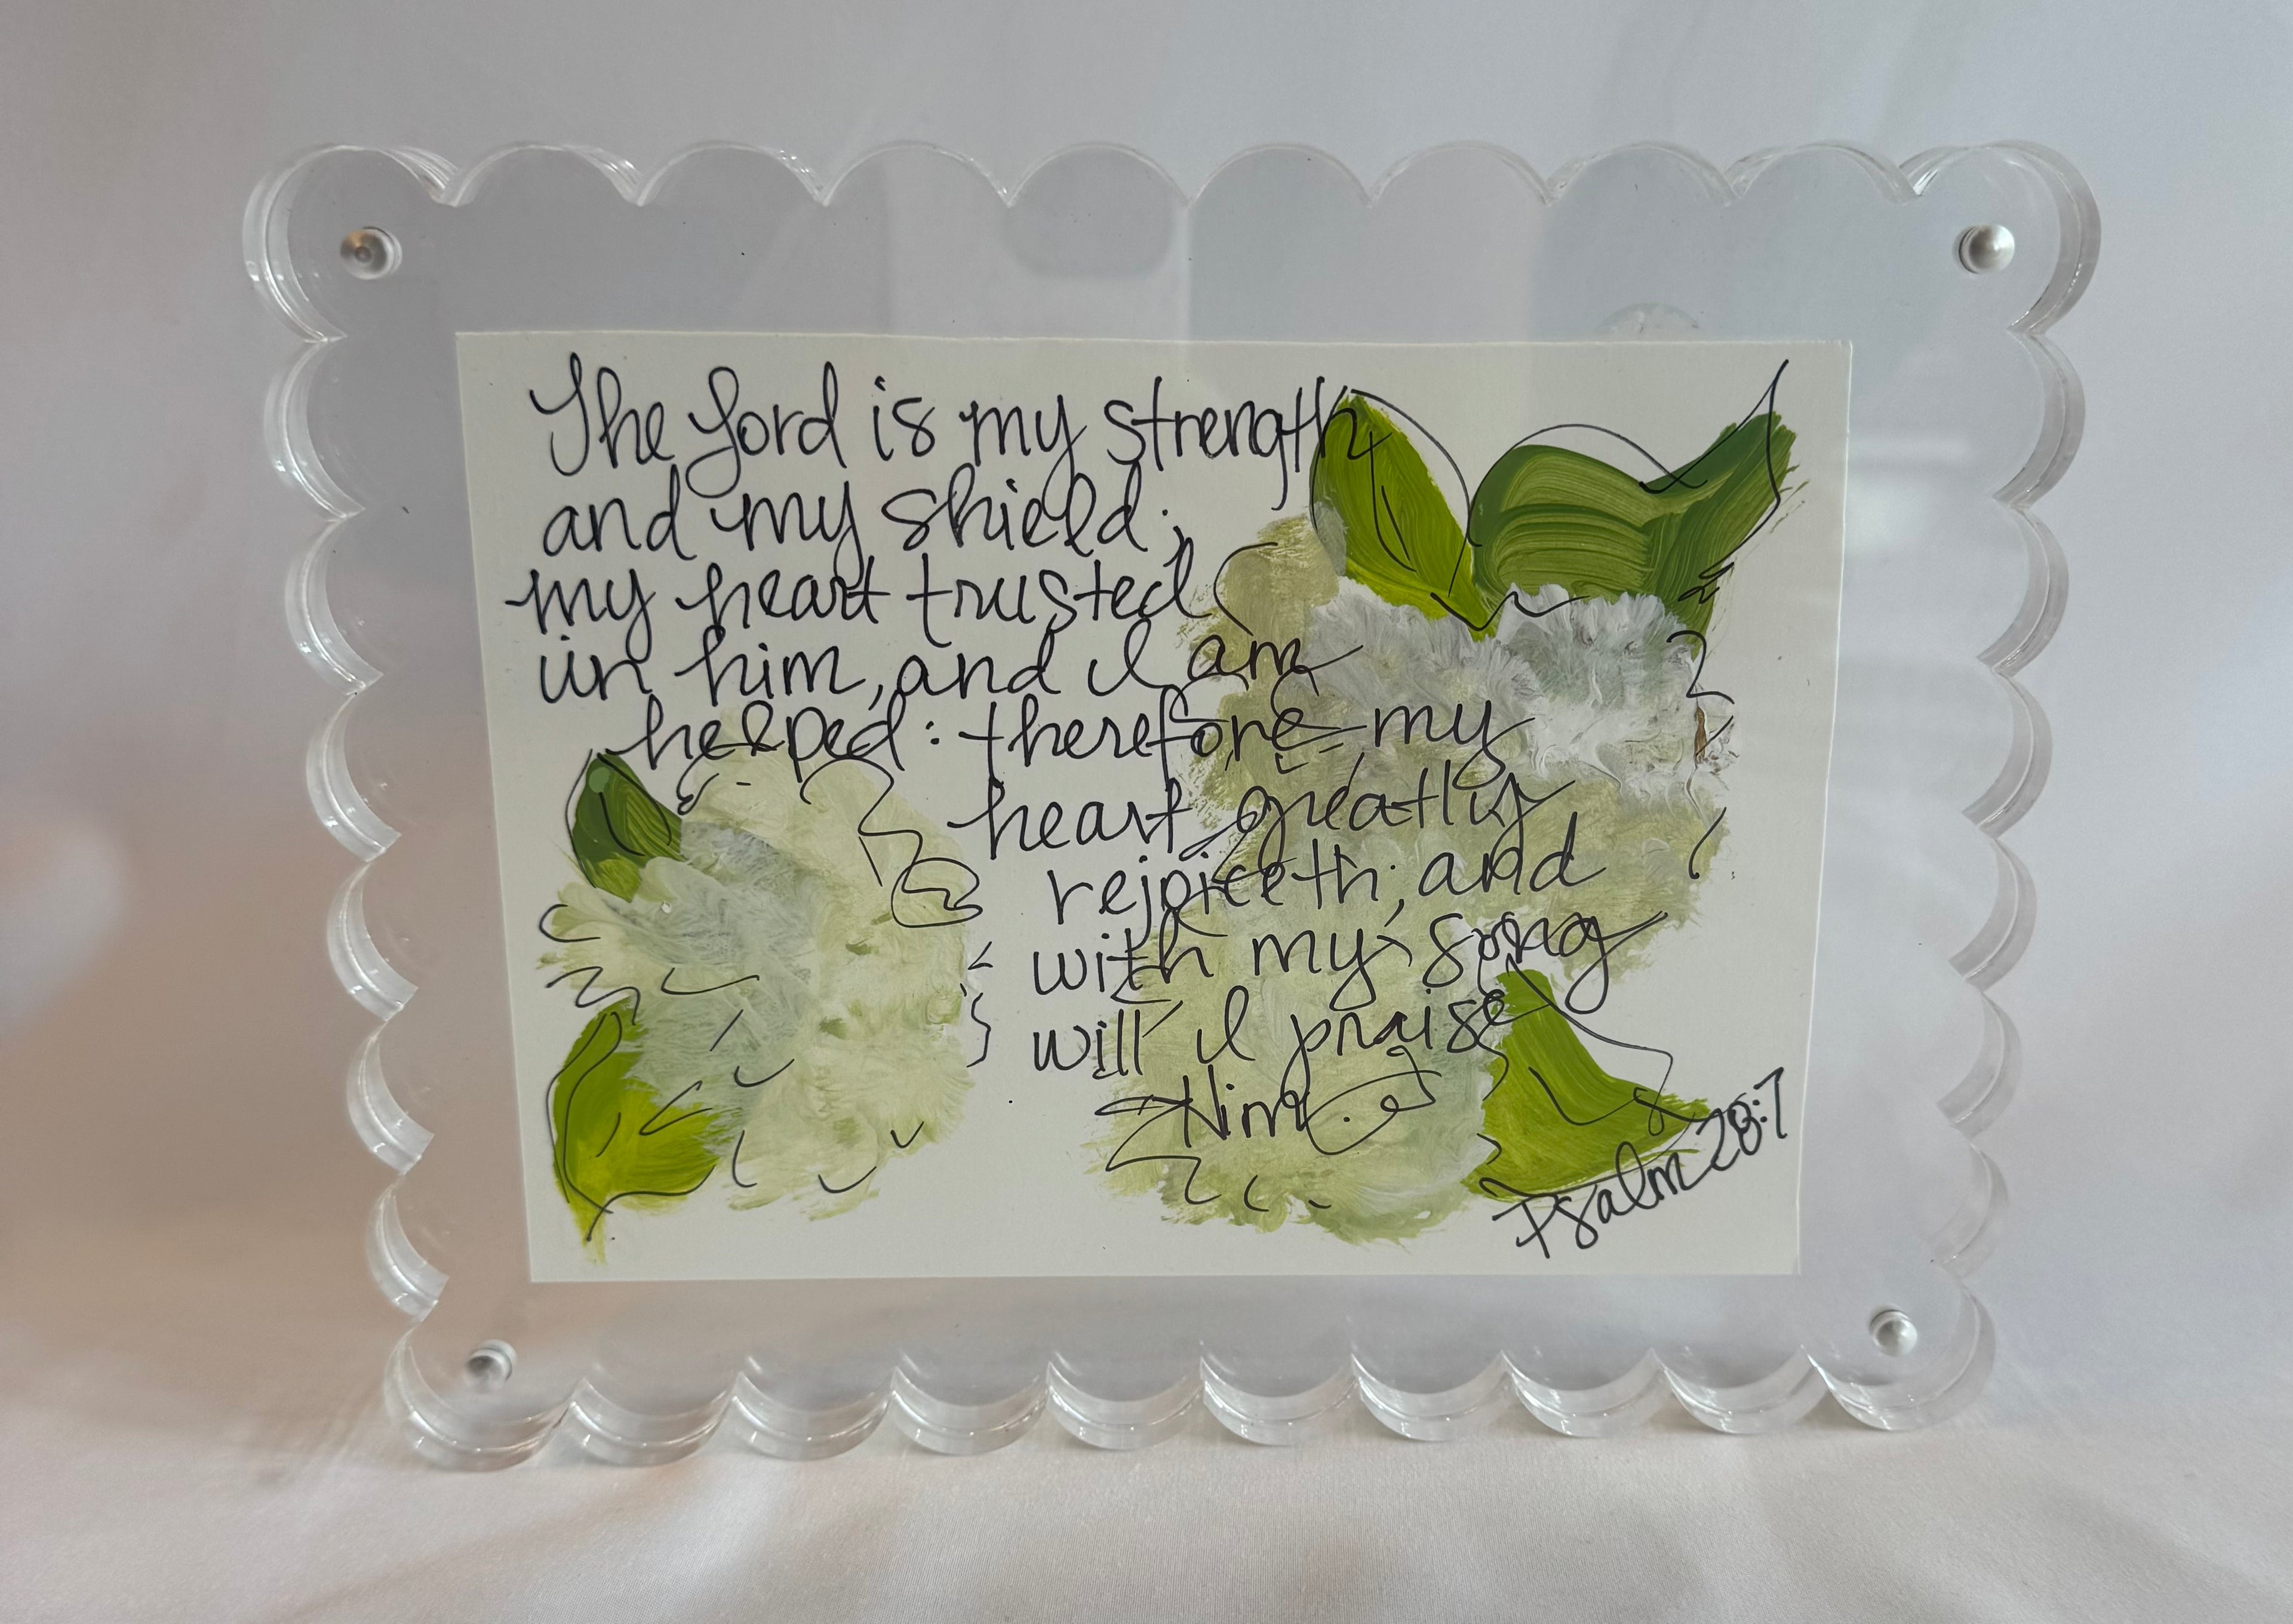 The Lord is my strength
and my shield;
my heart trusted
in him, and I am
helped: therefore my
heart greatly
rejoiceth; and
with my song
will I praise
Him.
Psalm 28:7